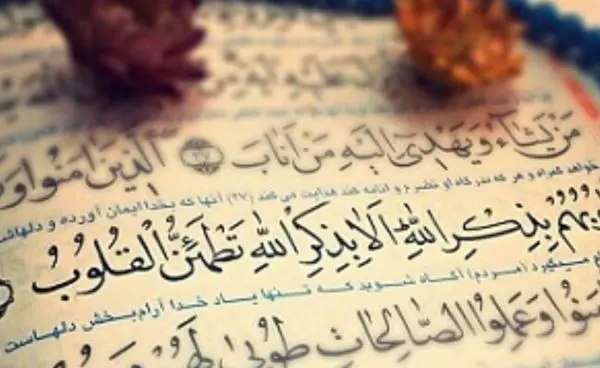 مَنْ يَشَاءُ وَيَهْدِي إِلَيْهِ مَنْ أَنَابَ ﴿٢٧﴾ الَّذِينَ آمَنُوا وَ
خواهد گمراه و هر که بدرگاه او تضرع و انابه کند هدایت می کند (۲۷) آنها که بخدا ایمان آورده و دلهاش
بِذِكْرِ اللَّهِ أَلَا بِذِكْرِ اللَّهِ تَطْمَئِنُّ الْقُلُوبُ
میگیرد (مردم) آگاه شوید که تنها یاد خدا آرام‌بخش دلهاست
وَعَمِلُوا الصَّالِحَاتِ طُوبَىٰ